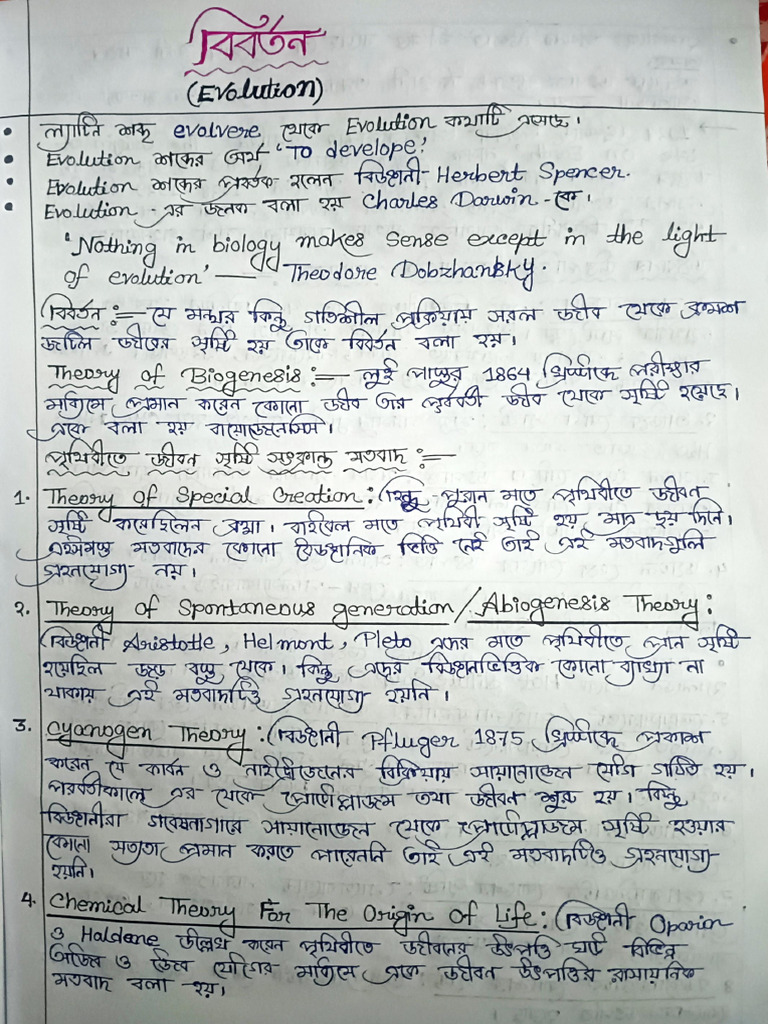 বিবর্তন
(Evolution)
• ল্যাটিন শব্দ evolvere থেকে Evolution কথাটি এসেছে।
• Evolution শব্দের অর্থ 'To develope'.
• Evolution শব্দের প্রবর্তক হলেন বিজ্ঞানী Herbert Spencer.
• Evolution -এর জনক বলা হয় Charles Darwin -কে।
'Nothing in biology makes sense except in the light
of evolution' — Theodore Dobzhansky.
বিবর্তন :— যে মন্থর কিন্তু গতিশীল প্রক্রিয়ায় সরল জীব থেকে ক্রমশ
জটিল জীবের সৃষ্টি হয় তাকে বিবর্তন বলা হয়।
Theory of Biogenesis :— লুই পাস্তুর 1864 খ্রিস্টাব্দে পরীক্ষার
মাধ্যমে প্রমান করেন কোনো জীব তার পূর্ববর্তী জীব থেকে সৃষ্টি হয়েছে।
একে বলা হয় বায়োজেনেসিস।
পৃথিবীতে জীবন সৃষ্টি সংক্রান্ত মতবাদ :—
1. Theory of Special Creation : হিন্দু পুরান মতে পৃথিবীতে জীবন
সৃষ্টি করেছিলেন ব্রহ্মা। বাইবেল মতে পৃথিবী সৃষ্টি হয় মাত্র ছয় দিনে।
এইসমস্ত মতবাদের কোনো বৈজ্ঞানিক ভিত্তি নেই তাই এই মতবাদগুলি
গ্রহনযোগ্য নয়।
2. Theory of Spontaneous generation / Abiogenesis Theory :
বিজ্ঞানী Aristotle, Helmont, Pleto এদের মতে পৃথিবীতে প্রান সৃষ্টি
হয়েছিল জড় বস্তু থেকে। কিন্তু এদের বিজ্ঞানভিত্তিক কোনো ব্যাখ্যা না
থাকায় এই মতবাদটিও গ্রহনযোগ্য হয়নি।
3. Cyanogen Theory : বিজ্ঞানী Pfluger 1875 খ্রিস্টাব্দে প্রকাশ
করেন যে কার্বন ও নাইট্রোজেনের বিক্রিয়ায় সায়ানোজেন যৌগ গঠিত হয়।
পরবর্তীকালে এর থেকে প্রোটোপ্লাজম তথা জীবন শুরু হয়। কিন্তু
বিজ্ঞানীরা গবেষনাগারে সায়ানোজেন থেকে প্রোটোপ্লাজম সৃষ্টি হওয়ার
কোনো সত্যতা প্রমান করতে পারেননি তাই এই মতবাদটিও গ্রহনযোগ্য
হয়নি।
4. Chemical Theory For The Origin Of Life : বিজ্ঞানী Oparin
ও Haldane উল্লেখ করেন পৃথিবীতে জীবনের উৎপত্তি ঘটে বিভিন্ন
অজৈব ও জৈব যৌগের মাধ্যমে একে জীবন উৎপত্তির রাসায়নিক
মতবাদ বলা হয়।